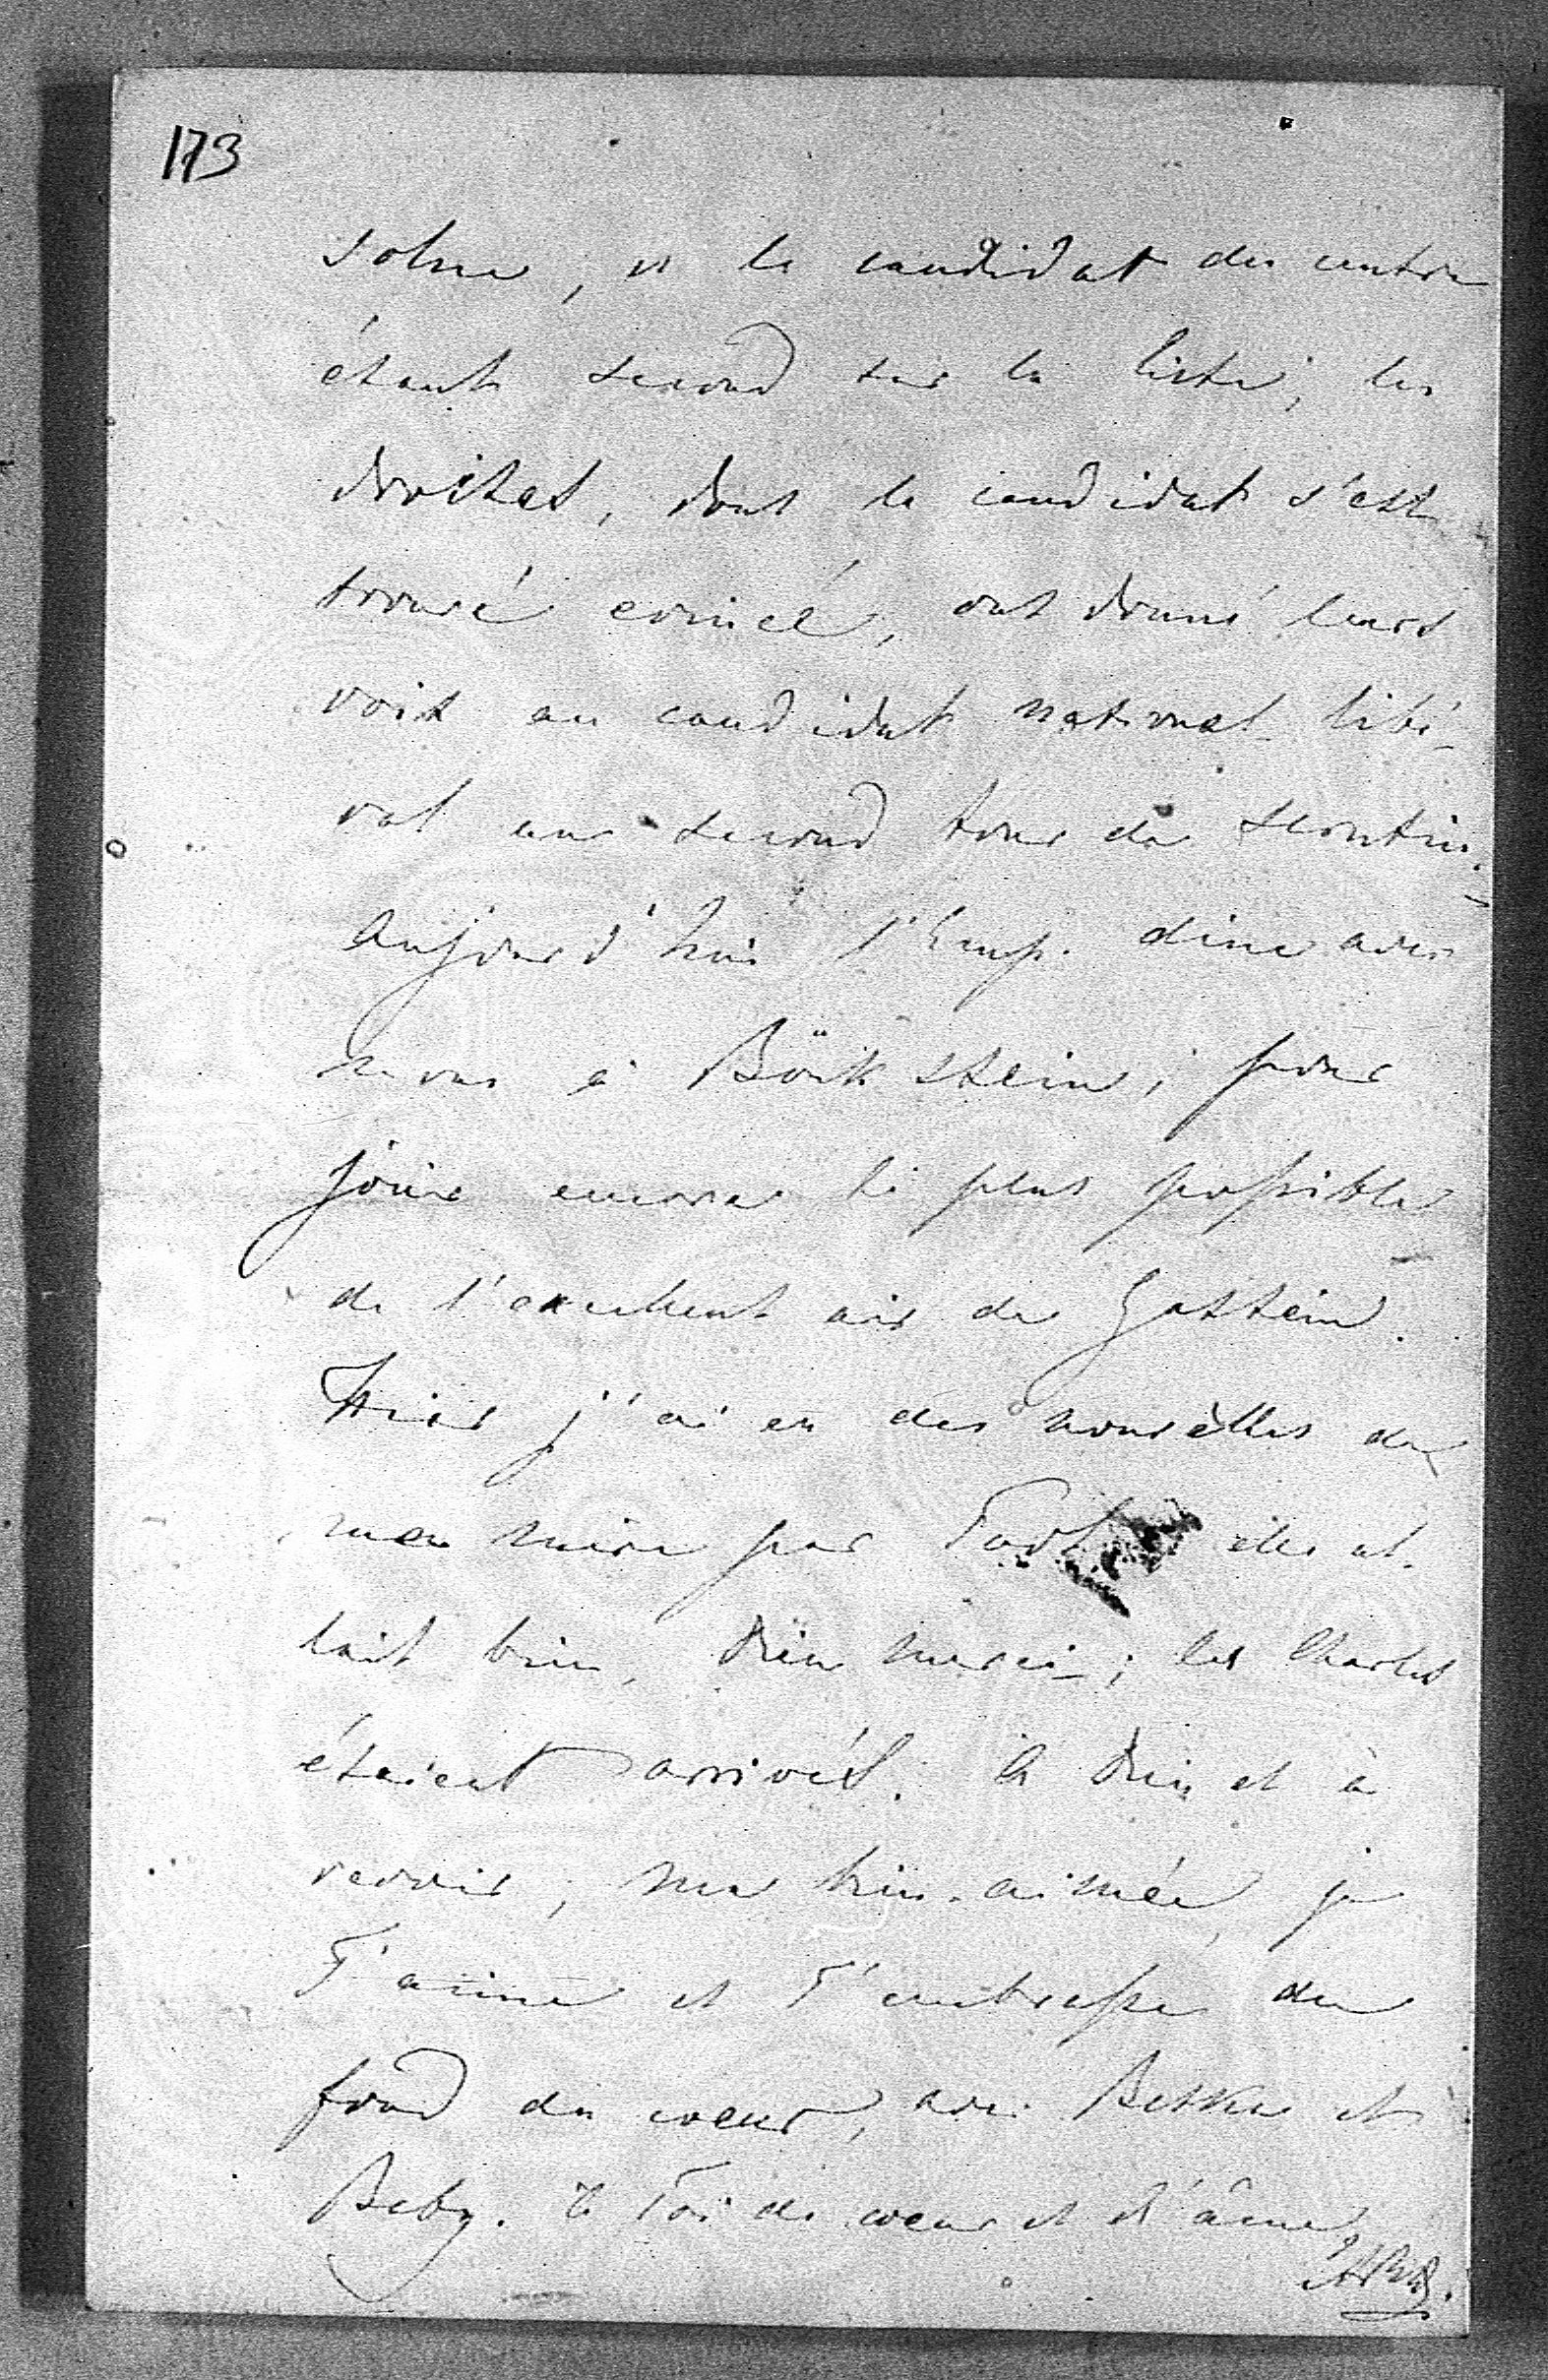 173
solue, et le candidat du centre
étant second sur la liste, les
droites, dont le candidat s'est
trouvé évincé, ont donné leurs
voix au candidat national libé-
ral au second tour de scrutin.
Aujourd'hui l'Emp. dine avec
nous à Böckstein; pour
jouir encore le plus possible
de l'excellent air de Gastein.
Hier j'ai eu des nouvelles de
ma mère par elle al-
lait bien, Dieu merci; les Charles
étaient arrivés. A Dieu et à
revoir, ma bien-aimée, je
T'aime et T'embrasse du
fond du coeur, avec et
Beby. à Toi de coeur et d'âme